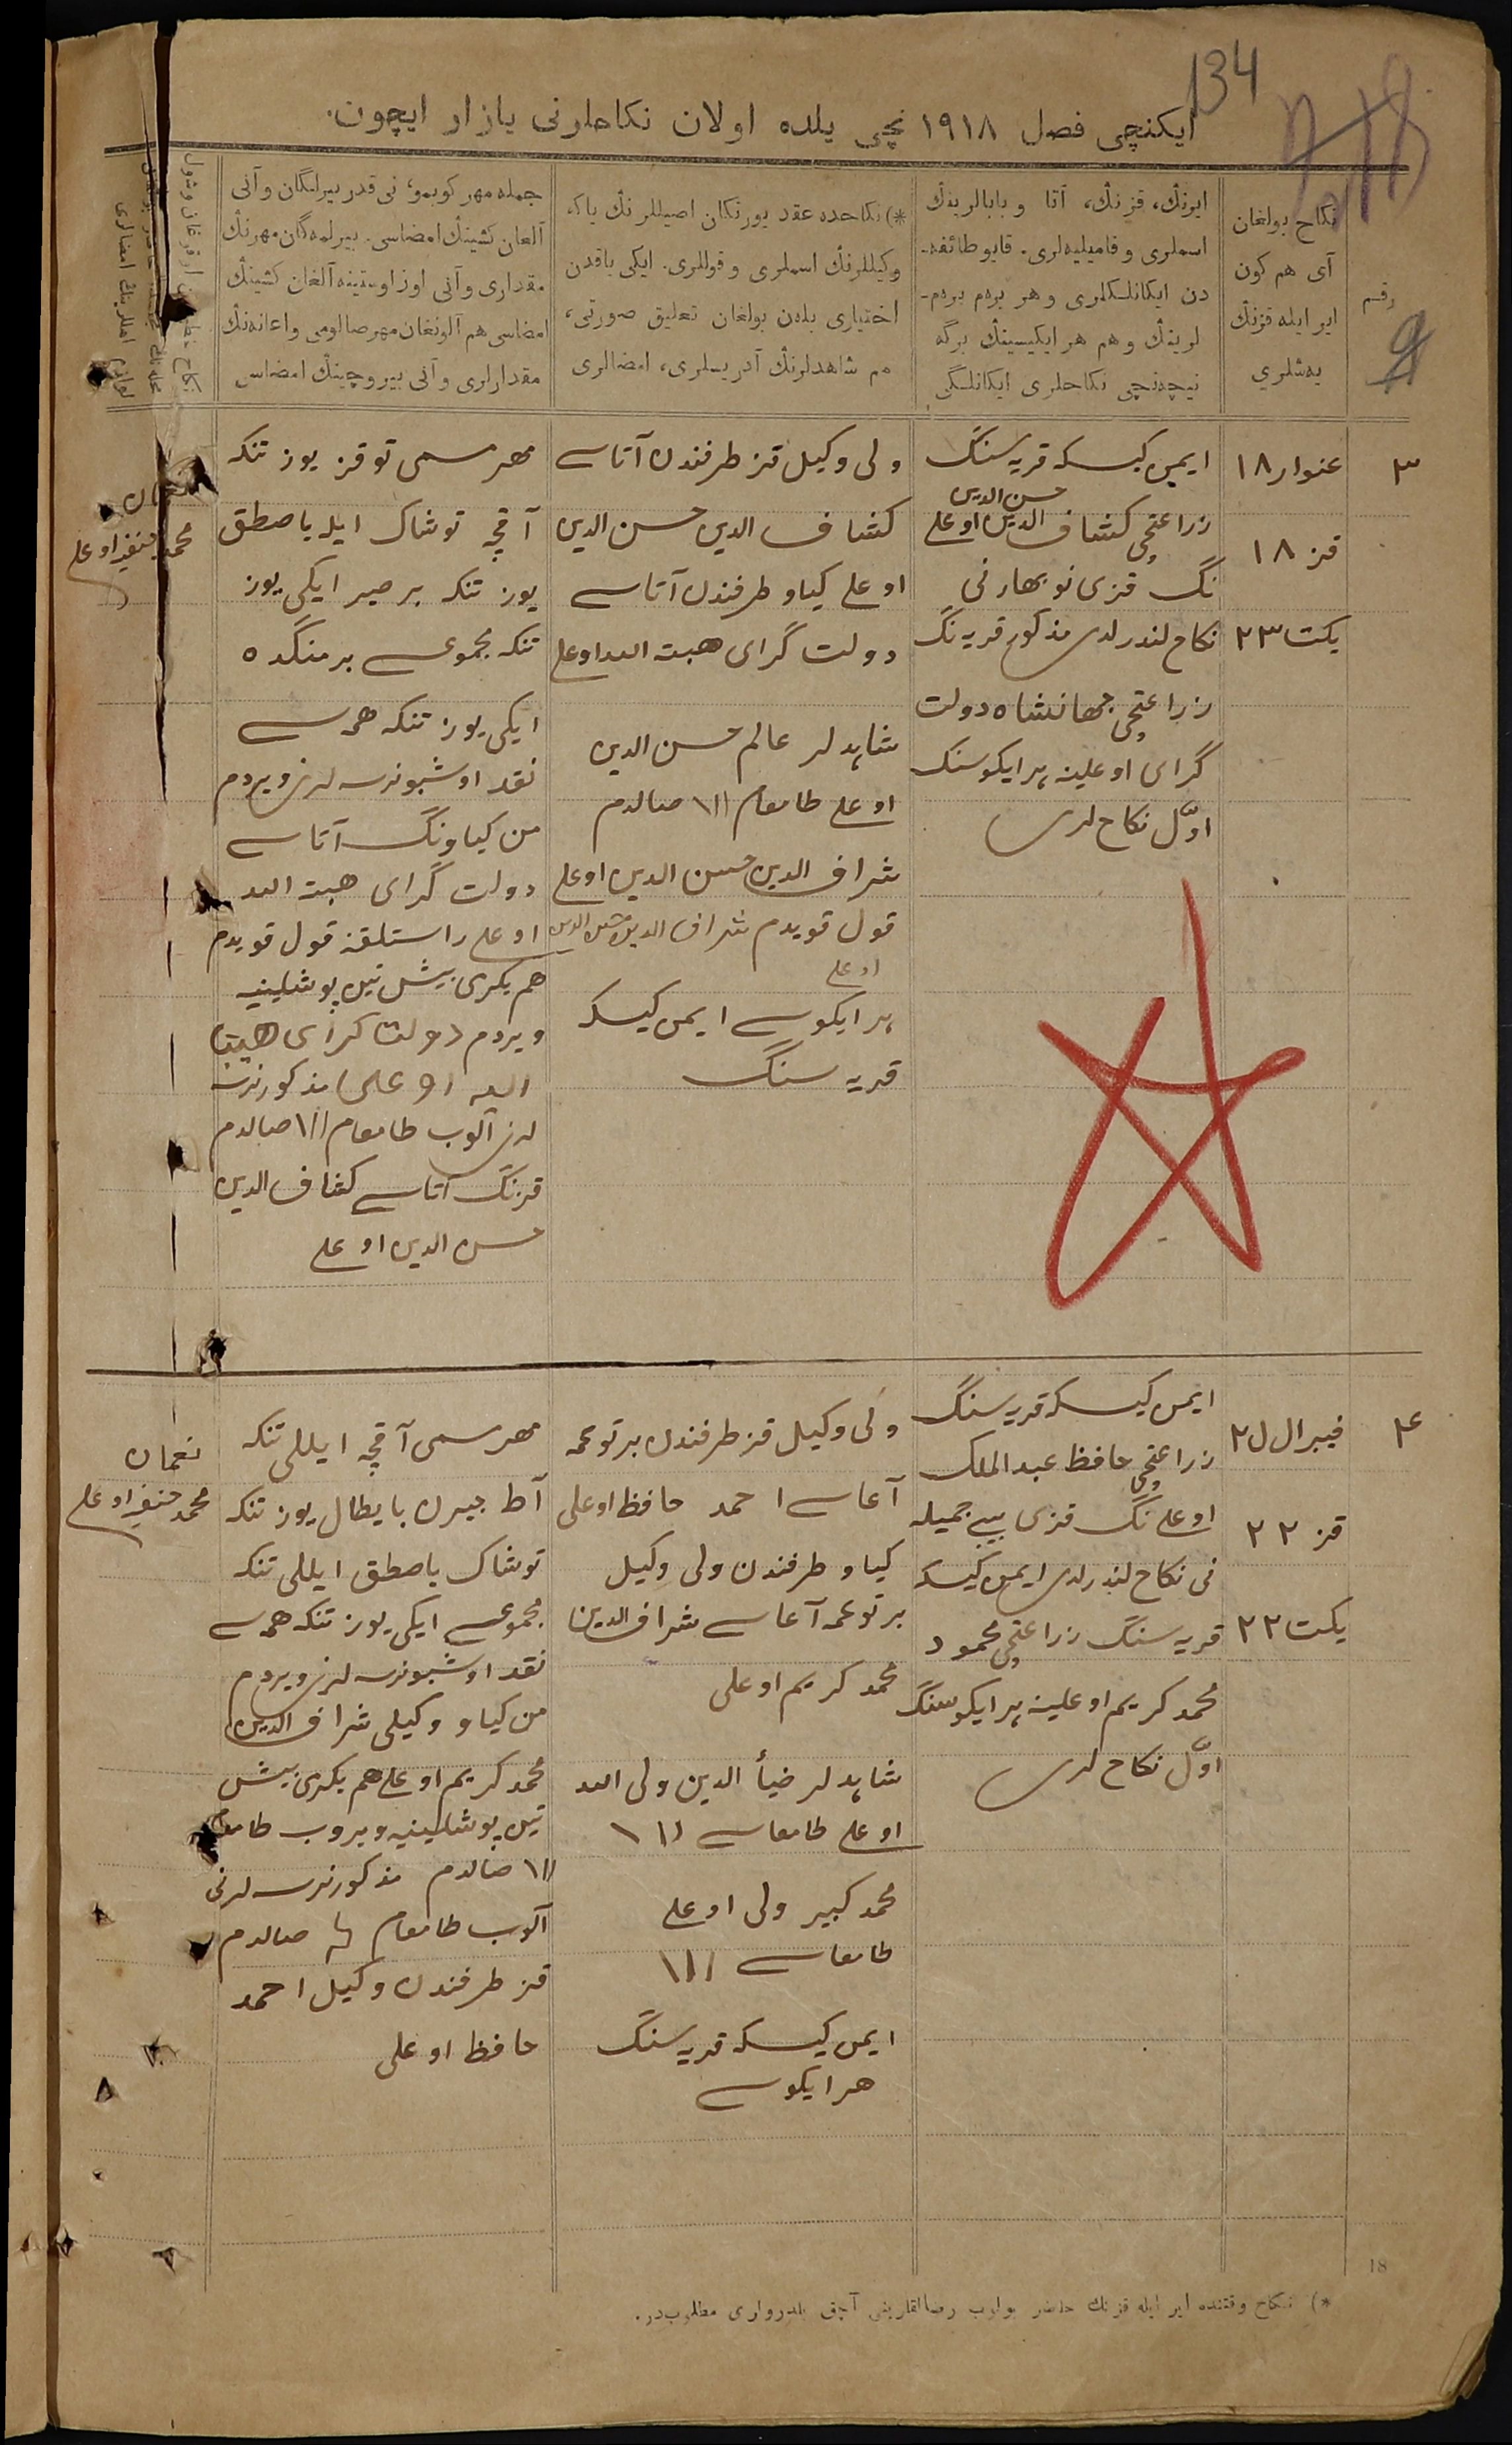 134
ایکنچی فصل ۱۹۱۸ نچی یلده اولان نکاحلرنی یازار ایچون.
رقم
نکاح بولغان
آی هم کون
ایر ایله قزنڭ
یه‌شلری
ایرنڭ، قزنڭ، آتا و بابالرینڭ
اسملری و فامیلیه‌لری. قایو طائفه‌-
دن ایکانلکلری و هر برم برم-
لرینڭ و هم هر ایکیسینڭ برگه
نیچه‌نچی نکاحلری ایکانلگی
*) نکاحده عقد یورتکان اصیللرنڭ یاکه
وکیللرنڭ اسملری و قوللری. ایکی یاقدن
اختیاری بلەن بولغان تعلیق صورتی،
هم شاهدلرنڭ آدریسلری، امضالری
جمله مهر کوبمو؛ نی قدر بیرلگان و آنی
آلغان کشینڭ امضاسی. بیرلمه‌گان مهرنڭ
مقداری و آنی اوز اوستینه آلغان کشینڭ
امضاسی هم آلونغان مهر صالومی و اعانه‌نڭ
مقدارلری و آنی بیروچینڭ امضاسی
۳
غنوار ۱۸
قز ۱۸
یکت ۲۳
ایمن کیسکه قریه سنڭ
حسن الدین
زراعتچی کشاف الدین اوغلی
نڭ قزی نوبهارنی
نکاحلندرلدی مذکور قریه نڭ
زراعتچی جهانشاه دولت
گرای اوغلینه هر ایکوسنڭ
اوّل نکاحلری
ولی وکیل قز طرفندن آتاسی
کشاف الدین حسن الدین
اوغلی کیاو طرفندن آتاسی
دولت گرای هبة الله اوغلی
شاهدلر عالم حسن الدین
اوغلی طامغام ۱۱۱ صالدم
شراف الدین حسن الدین اوغلی
قول قویدم شراف الدین حسن الدین
اوغلی
هر ایکوسی ایمن کیسکه
قریه سنڭ
مهر مسمی توقز یوز تنکه
آقچه توشاك ایله یاصطق
یوز تنکه بر صیر ایکی یوز
تنکه مجموعی بر منگده
ایکی یوز تنکه همه سی
نقد اوشبو نرسه لرنی ویردم
من کیاونڭ آتاسی
دولت گرای هبة الله
اوغلی راستلقغه قول قویدم
هم یکرمی بیش تین پوشلینه
ویردم دولت کرای هبة
الله اوغلی مذکور نرسه
لرنی آلوب طامغام ۱۱۱ صالدم
قزنڭ آتاسی کشاف الدین
حسن الدین اوغلی
محمد حنفی اوغلی
۴
فیبرال ل ۲
قز ۲۲
یکت ۲۲
ایمن کیسکه قریه سنڭ
زراعتچی حافظ عبدالملك
اوغلی نڭ قزی بیبی جمیله
نی نکاحلندرلدی ایمن کیسکه
قریه سنڭ زراعتچی محمود
محمد کریم اوغلینه هر ایکوسنڭ
اوّل نکاحلری
ولی وکیل قز طرفندن برتوغمه
آغاسی احمد حافظ اوغلی
کیاو طرفندن ولی وکیل
برتوغمه آغاسی شراف الدین
محمد کریم اوغلی
شاهدلر ضیأ الدین ولی الله
اوغلی طامغاسی ۱۱۱
محمد کبیر ولی اوغلی
طامغاسی ۱۱۱
ایمن کیسکه قریه سنڭ
هر ایکوسی
مهر مسمی آقچه ایللی تنکه
آط جیرن بایطال یوز تنکه
توشاك یاصطق ایللی تنکه
مجموعی ایکی یوز تنکه همه سی
نقد اوشبو نرسه لرنی ویردم
من کیاو وکیلی شراف الدین
محمد کریم اوغلی هم یکرمی بیش
تین پوشلینه ویروب طامغام
۱۱۱ صالدم مذکور نرسه لرنی
آلوب طامغام صالدم
قز طرفندن وکیل احمد
حافظ اوغلی
نعمان
محمد حنفی اوغلی
18
*) نکاح وقتنده ایر ایله قزنڭ حاضر بولوب رضالقلرینی آچق بلدرولری مطلوبدر.